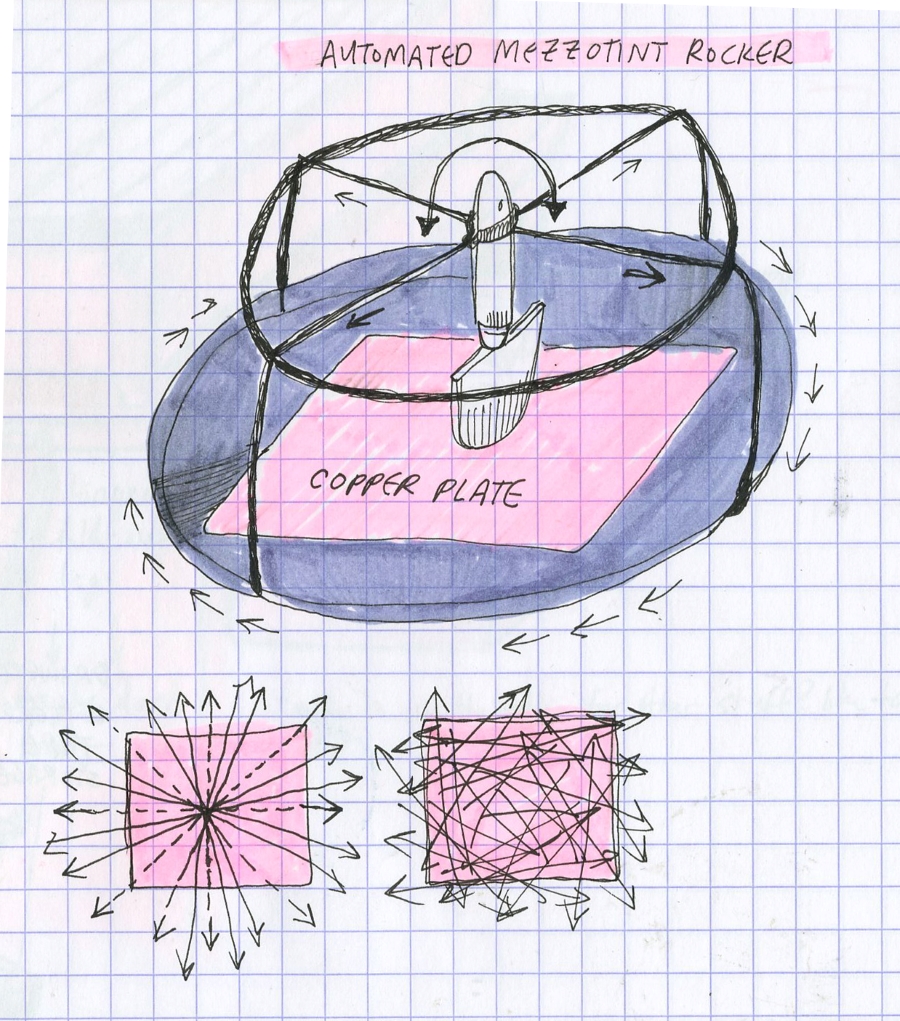 AUTOMATED MEZZOTINT ROCKER
COPPER PLATE